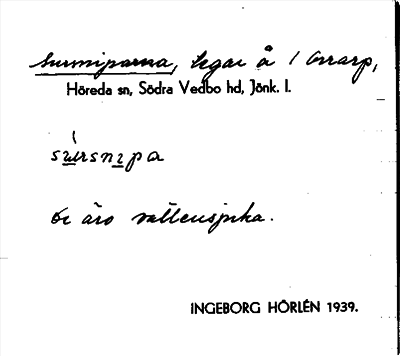 Sursniparna, tegar å 1 Orrarp,
Höreda sn, Södra Vedbo hd, Jönk. l.
sursnipa
de äro vattensjuka.
INGEBORG HÖRLÉN 1939.